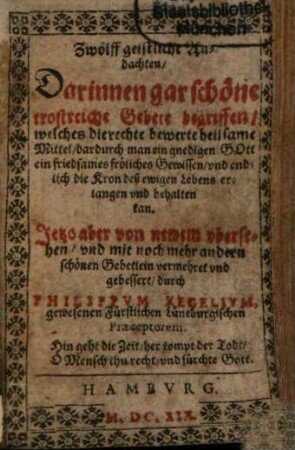 Staatsbibliothek
München
Zwölff geistliche An-
dachten/
Darinnen gar schöne
trostreiche Gebete begriffen/
welches die rechte bewerte heilsame
Mittel/dardurch man ein gnedigen GOtt
ein friedsames fröliches Gewissen/vnd end-
lich die Kron deß ewigen Lebens er-
langen vnd behalten
kan.
Jetzo aber von newem vberse-
hen/ vnd mit noch mehr andern
schönen Gebetlein vermehret vnd
gebessert/ durch
PHILIPPVM KEGELIVM,
gewesenen Fürstlichen Lüneburgischen
Præceptorem.
Hin geht die Zeit/ her kompt der Todt/
O Mensch thu recht/ vnd fürchte Gott.
HAMBVRG.
M. DC. XIX.